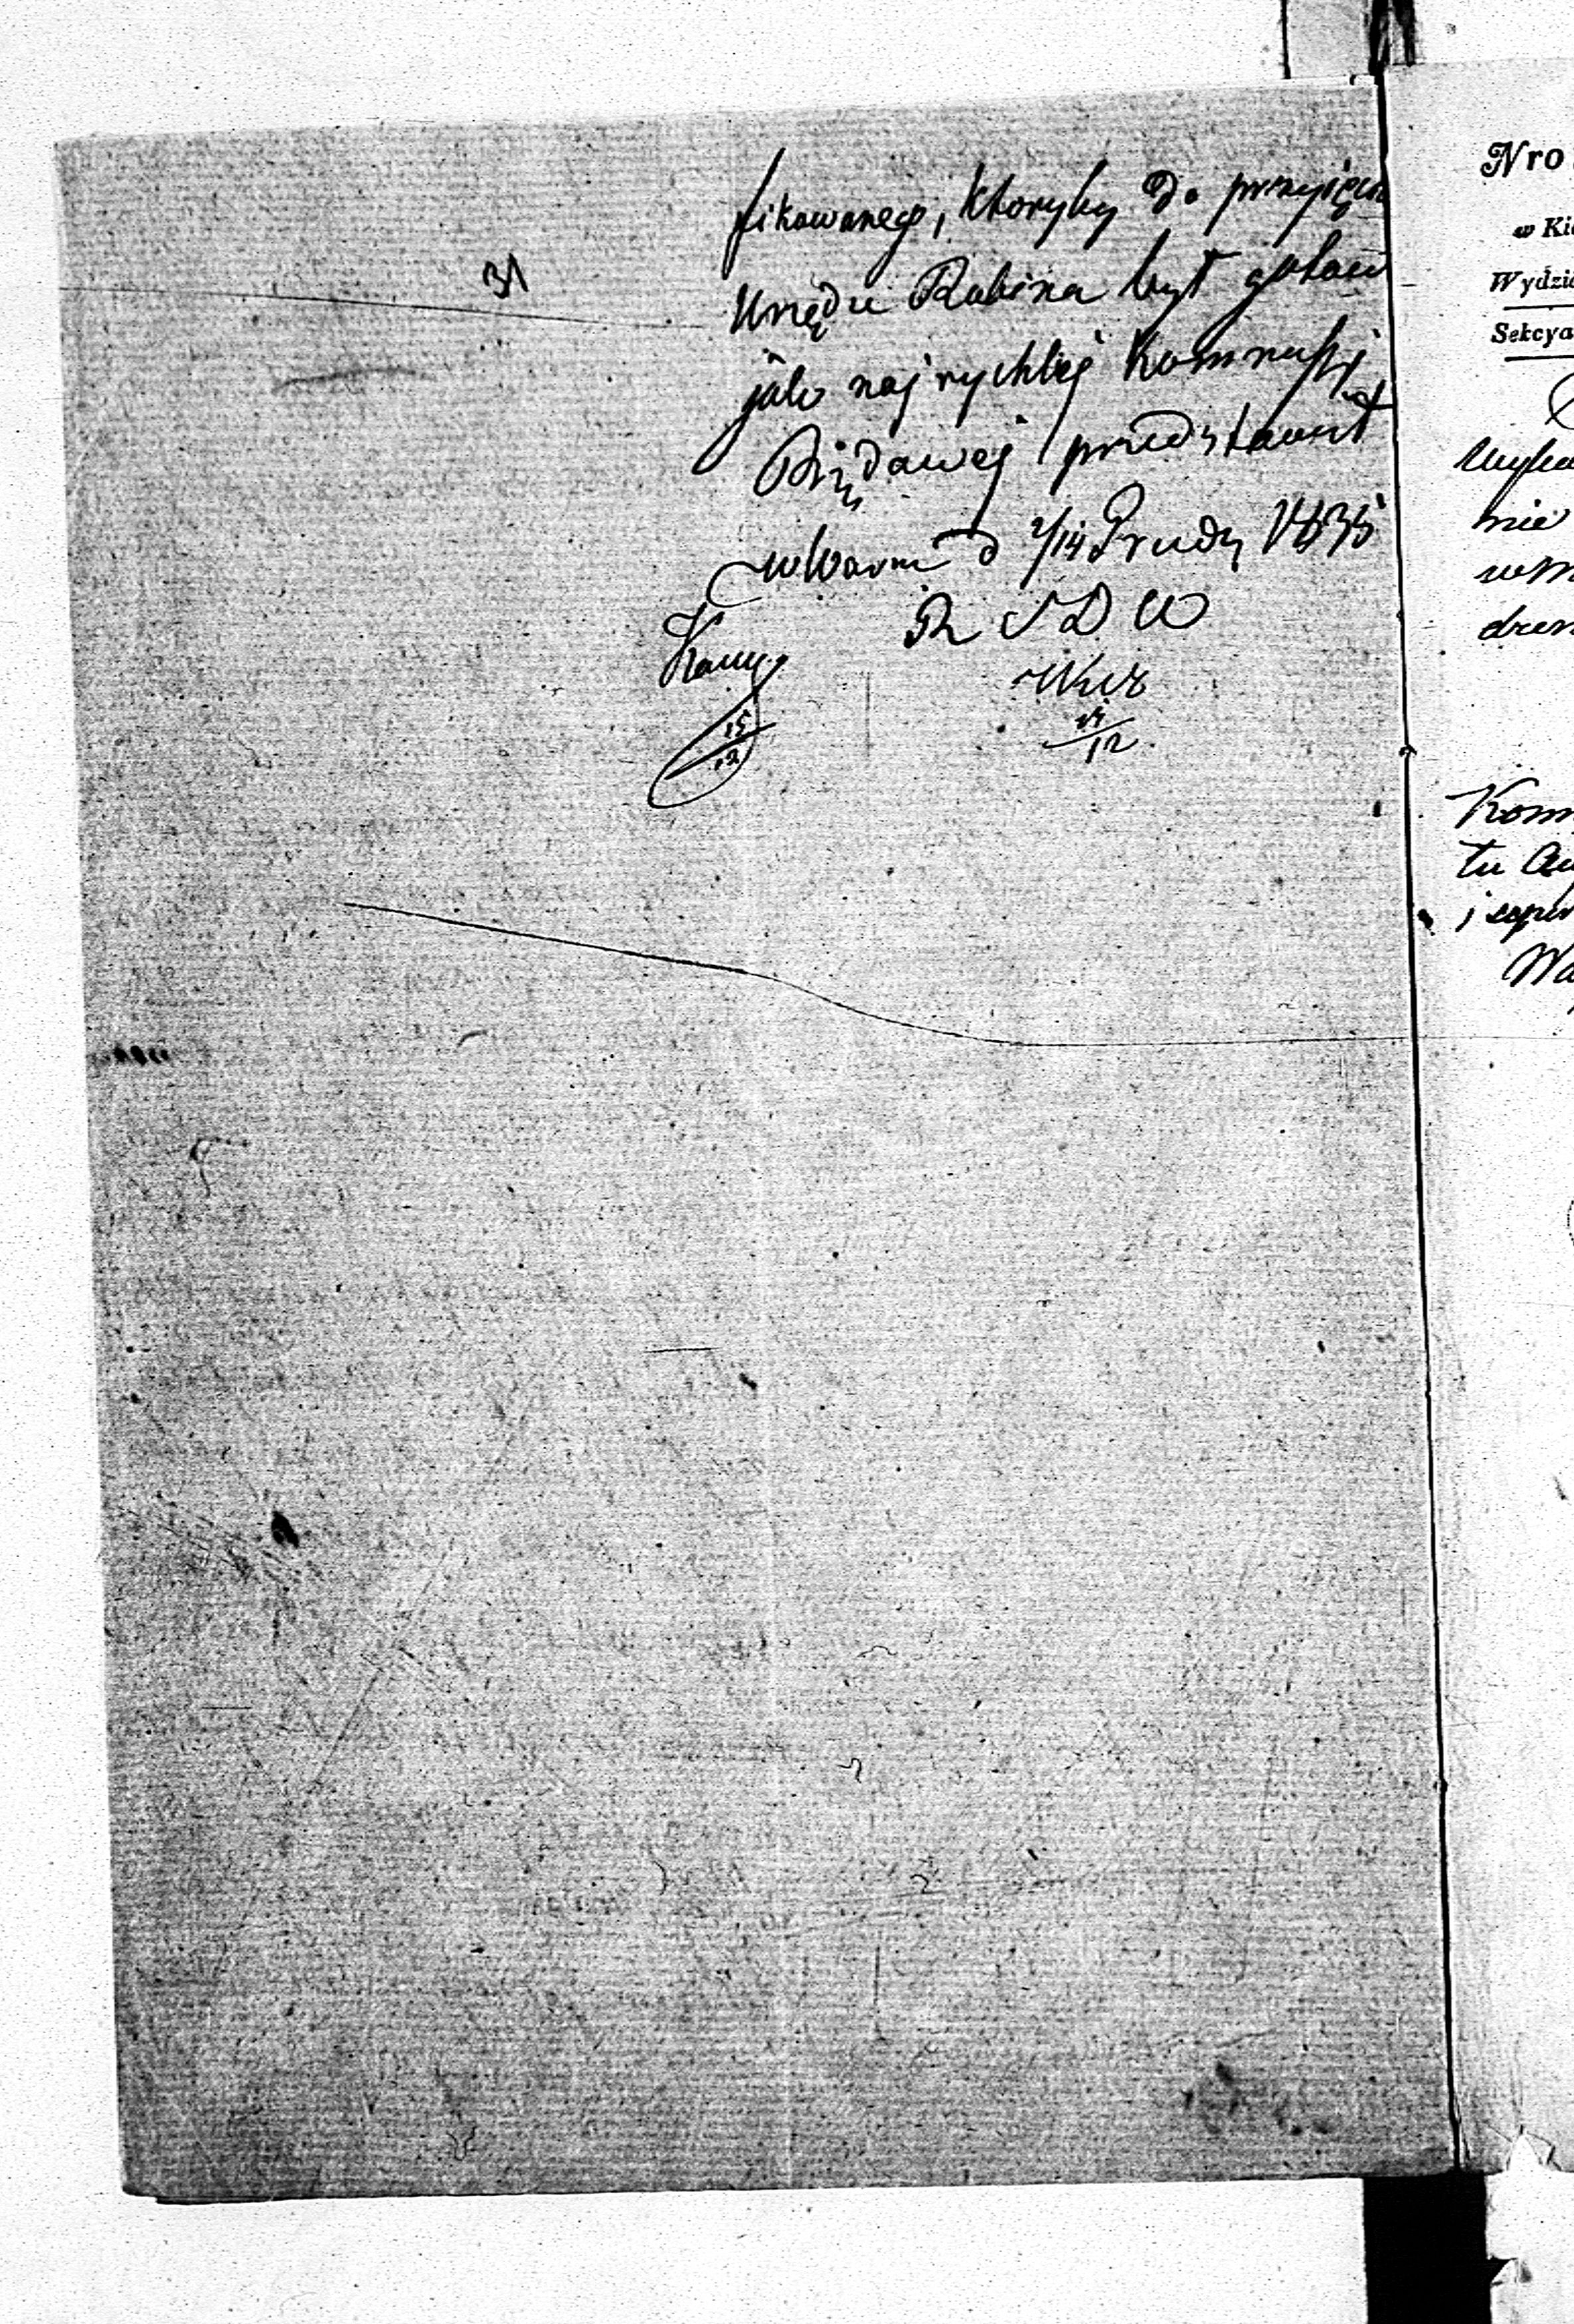 31
fikowanego, ktoryby do przyięcia
Urzędu Rabina był gotów
jak najrychlej Kommissyi
Rządowej przedstawił
w Warsz d 2/14 Grudn 1835
15/12
14/12
Nro
w Ki
Wydzi
Sekcya
nie
Komm
tu Au
Wa